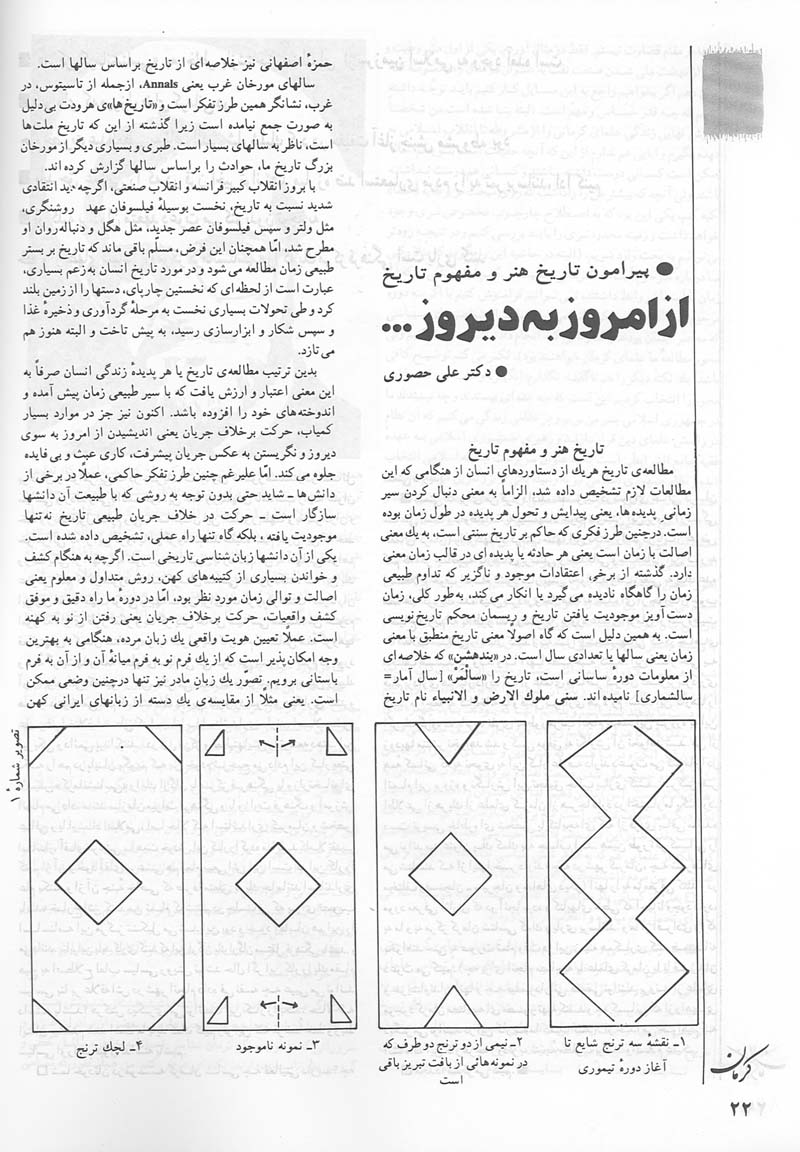 ● پیرامون تاریخ هنر و مفهوم تاریخ
از امروز به دیروز ...
● دکتر علی حصوری
تاریخ هنر و مفهوم تاریخ
مطالعه‌ی تاریخ هریك از دستاوردهای انسان از هنگامی که این
مطالعات لازم تشخیص داده شد، الزاماً به معنی دنبال کردن سیر
زمانی پدیده‌ها، یعنی پیدایش و تحول هر پدیده در طول زمان بوده
است. درچنین طرز فکری که حاکم بر تاریخ سنتی است، به یك معنی
اصالت با زمان است یعنی هر حادثه یا پدیده ای در قالب زمان معنی
دارد. گذشته از برخی اعتقادات موجود و ناگزیر که تداوم طبیعی
زمان را گاهگاه نادیده می‌گیرد یا انکار می‌کند، به‌طور کلی، زمان
دست آویز موجودیت یافتن تاریخ و ریسمان محکم تاریخ‌نویسی
است. به همین دلیل است که گاه اصولاً معنی تاریخ منطبق با معنی
زمان یعنی سالها یا تعدادی سال است. در «بندهشن» که خلاصه‌ای
از معلومات دورهٔ ساسانی است، تاریخ را «سالْمَرْ» [سال آمار=
سالشماری] نامیده‌اند. سنی ملوك الارض و الانبیاء نام تاریخ
حمزهٔ اصفهانی نیز خلاصه‌ای از تاریخ براساس سالها است.
سالهای مورخان غرب یعنی Annals، ازجمله از تاسیتوس، در
غرب، نشانگر همین طرز تفکر است و «تاریخ‌ها»ی هرودت بی‌دلیل
به صورت جمع نیامده است زیرا گذشته از این که تاریخ ملت‌ها
است، ناظر به سالهای بسیار است. طبری و بسیاری دیگر از مورخان
بزرگ تاریخ ما، حوادث را براساس سالها گزارش کرده‌اند.
با بروز انقلاب کبیر فرانسه و انقلاب صنعتی، اگرچه دید انتقادی
شدید نسبت به تاریخ، نخست بوسیلهٔ فیلسوفان عهد روشنگری،
مثل ولتر و سپس فیلسوفان عصر جدید، مثل هگل و دنباله‌روان او
مطرح شد، امّا همچنان این فرض، مسلّم باقی ماند که تاریخ بر بستر
طبیعی زمان مطالعه می شود و در مورد تاریخ انسان به‌زعم بسیاری،
عبارت است از لحظه‌ای که نخستین چارپای، دستها را از زمین بلند
کرد و طی تحولات بسیاری نخست به مرحلهٔ گردآوری و ذخیرهٔ غذا
و سپس شکار و ابزارسازی رسید، به پیش تاخت و البته هنوز هم
می‌تازد.
بدین ترتیب مطالعه‌ی تاریخ یا هر پدیدهٔ زندگی انسان صرفاً به
این معنی اعتبار و ارزش یافت که با سیر طبیعی زمان پیش آمده و
اندوخته‌های خود را افزوده باشد. اکنون نیز جز در موارد بسیار
کمیاب، حرکت برخلاف جریان یعنی اندیشیدن از امروز به سوی
دیروز و نگریستن به عکس جریان پیشرفت، کاری عبث و بی فایده
جلوه می‌کند. امّا علیرغم چنین طرز تفکر حاکمی، عملاً در برخی از
دانش‌ها ـ شاید حتی بدون توجه به روشی که با طبیعت آن دانشها
سازگار است ـ حرکت در خلاف جریان طبیعی تاریخ نه‌تنها
موجودیت یافته، بلکه گاه تنها راه عملی، تشخیص داده شده است.
یکی از آن دانشها زبان شناسی تاریخی است. اگرچه به هنگام کشف
و خواندن بسیاری از کتیبه‌های کهن، روش متداول و معلوم یعنی
اصالت و توالی زمان مورد نظر بود، امّا در دورهٔ ما راه دقیق و موفق
کشف واقعیات، حرکت برخلاف جریان یعنی رفتن از نو به کهنه
است. عملاً تعیین هویت واقعی یك زبان مرده، هنگامی به بهترین
وجه امکان‌پذیر است که از یك فرم نو به فرم میانهٔ آن و از آن به فرم
باستانی برویم. تصوّر یك زبان مادر نیز تنها درچنین وضعی ممکن
است. یعنی مثلاً از مقایسه‌ی یك دسته از زبانهای ایرانی کهن
تصویر شمارهٔ ۱
۱ـ نقشهٔ سه ترنج شایع تا
آغاز دورهٔ تیموری
۲ـ نیمی از دو ترنج دو طرف که
در نمونه‌هائی از بافت تبریز باقی
است
۳ـ نمونه ناموجود
۴ـ لچك ترنج
کرمان
۲۲